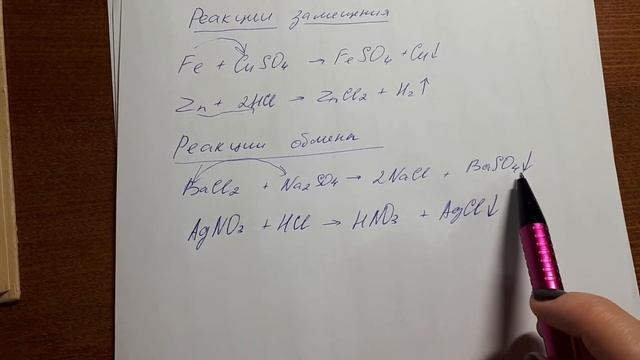 Реакции замещения
Fe + CuSO₄ → FeSO₄ + Cu↓
Zn + 2HCl → ZnCl₂ + H₂↑
Реакции обмена
BaCl₂ + Na₂SO₄ → 2NaCl + BaSO₄↓
AgNO₃ + HCl → HNO₃ + AgCl↓